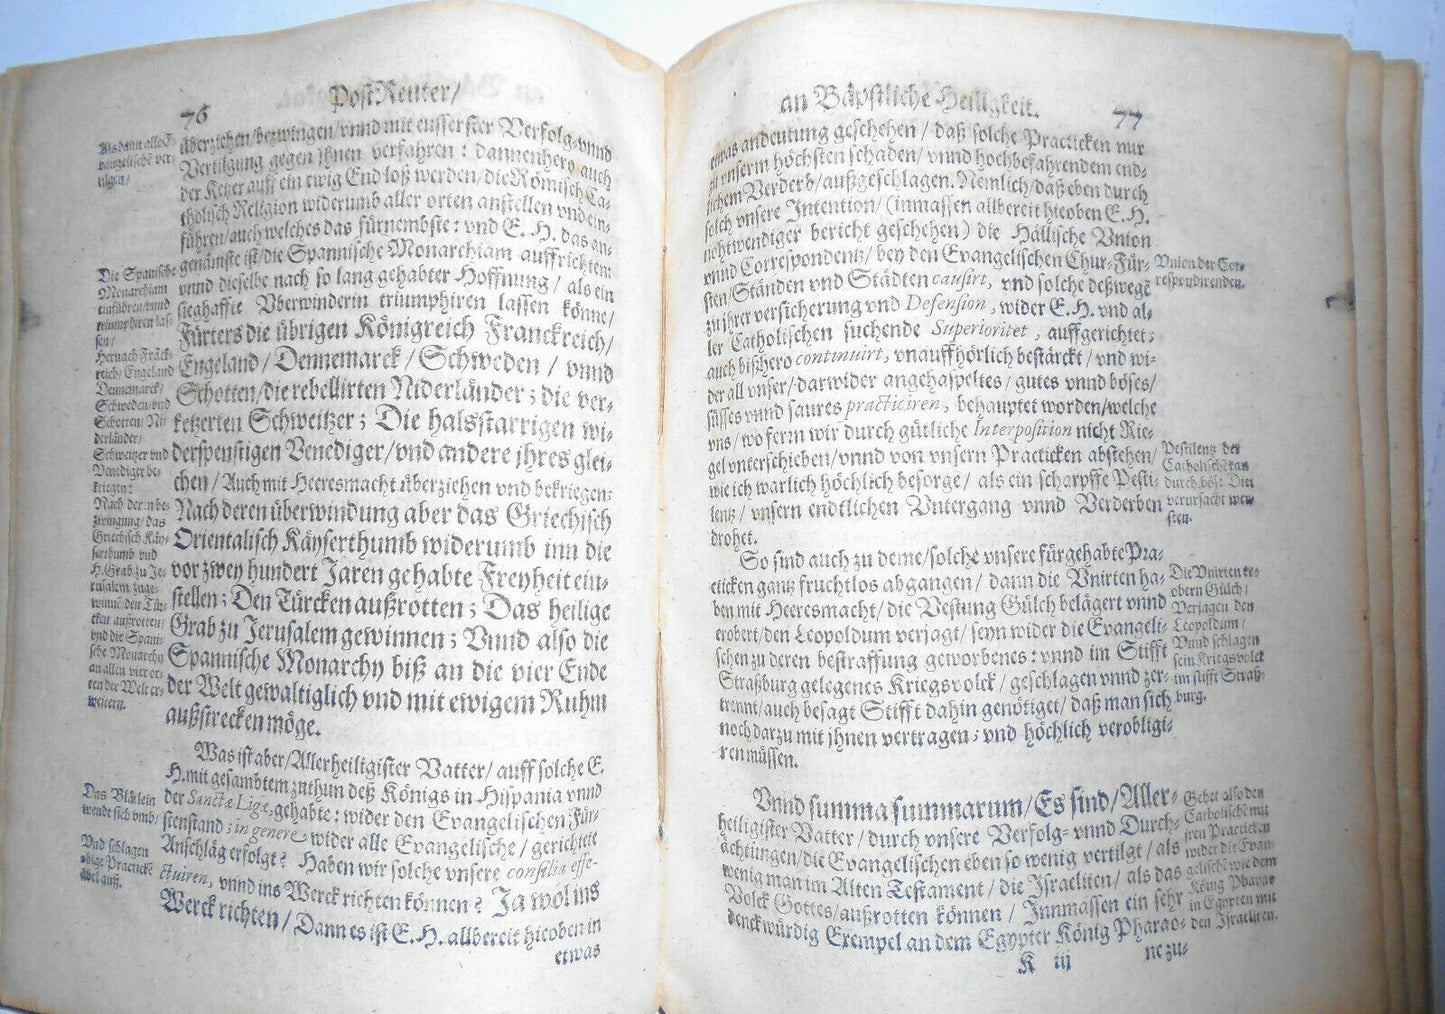 76
Post Reuter/
Als dann alle E-
vangelische ver-
tilgen/
überziehen/bezwingen/vnnd mit eusserster Verfolg-vnnd
Vertilgung gegen jhnen verfahren: dannenhero auch
der Ketzer auff ein ewig End loß werden/die Römisch Ca-
tholisch Religion widerumb aller orten anstellen vnd ein-
führen/auch welches das fürnembste: vnd E. H. das an-
genämste ist/die Spannische Monarchiam auffrichten:
vnnd dieselbe nach so lang gehabter Hoffnung/als ein
sieghaffte Vberwinderin triumphiren lassen könne/
Fürters die übrigen Königreich Franckreich/
Engeland/Dennemarck/Schweden/vnnd
Schotten/die rebellirten Niderländer; die ver-
ketzerten Schweitzer; Die halsstarrigen wi-
derspenstigen Venediger/vnd andere jhres glei-
chen/Auch mit Heeresmacht überziehen vnd bekriegen;
Nach deren überwindung aber das Griechisch
Orientalisch Käyserthumb widerumb inn die
vor zwey hundert Jaren gehabte Freyheit ein-
stellen; Den Türcken außrotten; Das heilige
Grab zu Jerusalem gewinnen; Vnnd also die
Spannische Monarchy biß an die vier Ende
der Welt gewaltiglich vnd mit ewigem Ruhm
außstrecken möge.
Die Spanische
Monarchiam
einführen/vnnd
triumphiren las-
sen/
Hernach Fräck-
reich/Engeland
Dennemarck/
Schweden/vnd
Schotten/Ni-
derländer/
Schweitzer vnd
Venediger be-
kriegen:
Nach deren be-
zwingung/das
Griechisch Käy-
serthumb vnd
H. Grab zu Je-
rusalem zuge-
winnē/den Tür-
cken außrotten/
vnd die Spani-
sche Monarchy
an allen vier or-
ten der Welt er-
weitern.
Was ist aber/Allerheiligister Vatter/auff solche E.
H. mit gesambtem zuthun deß Königs in Hispania vnnd
der Sanctæ Lige, gehabte: wider den Evangelischen Für-
stenstand; in genere, wider alle Evangelische/gerichtete
Anschläg erfolgt? Haben wir solche vnsere consilia effe-
ctuiren, vnnd ins Werck richten können? Ja wol ins
Werck richten/Dann es ist E. H. allbereit hieoben in
etwas
Das Blätlein
wendt sich vmb/
Vnd schlagen
obige Practickē
übel auß.
an Bäpstliche Heiligkeit.
77
etwas andeutung geschehen/daß solche Practicken nur
zu vnserm höchsten schaden/vnnd hochbefahrendem end-
lichem Verderb/außgeschlagen. Nemlich/daß eben durch
solch vnsere Intention/(inmassen allbereit hieoben E. H.
nohtwendiger bericht geschehen) die Hällische Vnion
vnnd Correspondentz/bey den Evangelischen Chur-Für-
sten/Ständen vnd Städten causirt, vnd solche deßwegē
zu jhrer versicherung vnd Defension, wider E. H. vnd al-
ler Catholischen suchende Superioritet, auffgerichtet;
auch bißhero continuirt, vnauffhörlich bestärckt/vnd wi-
der all vnser/darwider angehaspeltes/gutes vnnd böses/
süsses vnnd saures practiciren, behauptet worden/welche
vns/wo fern wir durch gütliche Interposition nicht Rie-
gel vnterschieben/vnnd von vnsern Practicken abstehen/
wie ich warlich höchlich besorge/als ein scharpffe Pesti-
lentz/vnsern endtlichen Vntergang vnnd Verderben
drohet.
Vnion der Cor-
respondirenden.
Pestilentz der
Catholischē an
durch böse Diet
verursacht wer-
sten.
So sind auch zu deme/solche vnsere fürgehabte Pra-
cticken gantz fruchtlos abgangen/dann die Vnirten ha-
ben mit Heeresmacht/die Vestung Gülch belägert vnnd
erobert/den Leopoldum verjagt/seyn wider die Evangeli-
schen zu deren bestraffung geworbenes: vnnd im Stifft
Straßburg gelegenes Kriegsvolck/geschlagen vnnd zer-
trennt/auch besagt Stifft dahin genötiget/daß man sich
noch darzu mit jhnen vertragen; vnd höchlich verobligi-
ren müssen.
Die Vnirten er-
obern Gülch/
Verjagen den
Leopoldum/
Vnnd schlagen
sein Kriegsvolck
im stifft Straß-
burg.
Vnnd summa summarum/Es sind/Aller-
heiligister Vatter/durch vnsere Verfolg-vnnd Durch-
ächtungen/die Evangelischen eben so wenig vertilgt/als
wenig man im Alten Testament/die Israeliten/als das
Volck Gottes/außrotten können/Innmassen ein sehr
denckwürdig Exempel an dem Egypter König Pharao-
K iij
ne zu-
Gehet also den
Catholischē mit
jren Practicken
wider die Evan-
gelische wie dem
König Pharao
in Egypten mit
den Israeliten.